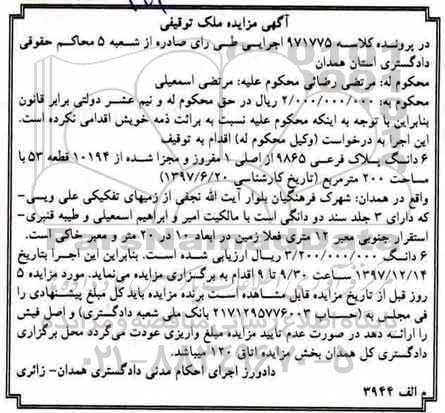 آگهی مزایده ملک توقیفی
در پرونده کلاسه ۹۷۱۷۷۵ اجرایی طی رای صادره از شعبه ۵ محاکم حقوقی
دادگستری استان همدان
محکوم له: مرتضی رضائی محکوم علیه: مرتضی اسمعیلی
محکوم به: ۲/۰۰۰/۰۰۰/۰۰۰ ریال در حق محکوم له و نیم عشر دولتی برابر قانون
بنابراین با توجه به اینکه محکوم علیه نسبت به برائت ذمه خویش اقدامی نکرده است.
این اجرا به درخواست (وکیل محکوم له) اقدام به توقیف
۶ دانگ پلاک فرعی ۹۸۶۵ از اصلی ۱ مفروز و مجزا شده از ۱۰۱۹۴ قطعه ۵۳ با
مساحت ۲۰۰ مترمربع (تاریخ کارشناسی ۱۳۹۷/۶/۲۰)
واقع در همدان: شهرک فرهنگیان بلوار آیت الله نجفی از زمیهای تفکیکی علی ویسی-
که دارای ۳ جلد سند دو دانگی است با مالکیت امیر و ابراهیم اسمعیلی و طیبه قنبری-
استقرار جنوبی معبر ۱۲ متری فعلا زمین در ابعاد ۱۰ در ۲۰ متر و معبر خاکی است.
۶ دانگ ۳/۲۰۰/۰۰۰/۰۰۰ ریال ارزیابی شده است. بنابراین این اجرا بتاریخ
۱۳۹۷/۱۲/۱۴ ساعت ۹/۳۰ تا ۹ اقدام به برگزاری مزایده می‌نماید. مورد مزایده ۵
روز قبل از تاریخ مزایده قابل مشاهده است برنده مزایده باید کل مبلغ پیشنهادی را
فی مجلس به (حساب ۲۱۷۱۲۹۵۷۷۶۰۰۳ بانک ملی شعبه دادگستری) و اصل فیش
را ارائه دهد در صورت عدم تایید مزایده مبلغ واریزی عودت می‌گردد محل برگزاری
دادگستری کل همدان بخش مزایده اتاق ۱۲۰ میباشد.
دادورز اجرای احکام مدنی دادگستری همدان- زائری
* الف ۳۹۴۴
۰۲۱-۸۸۳۴۹۶۷۰-۵